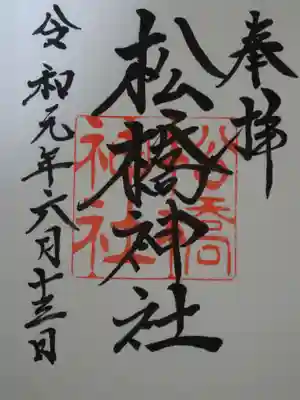 奉拝
松橋神社
令和元年六月十三日
松橋
神社